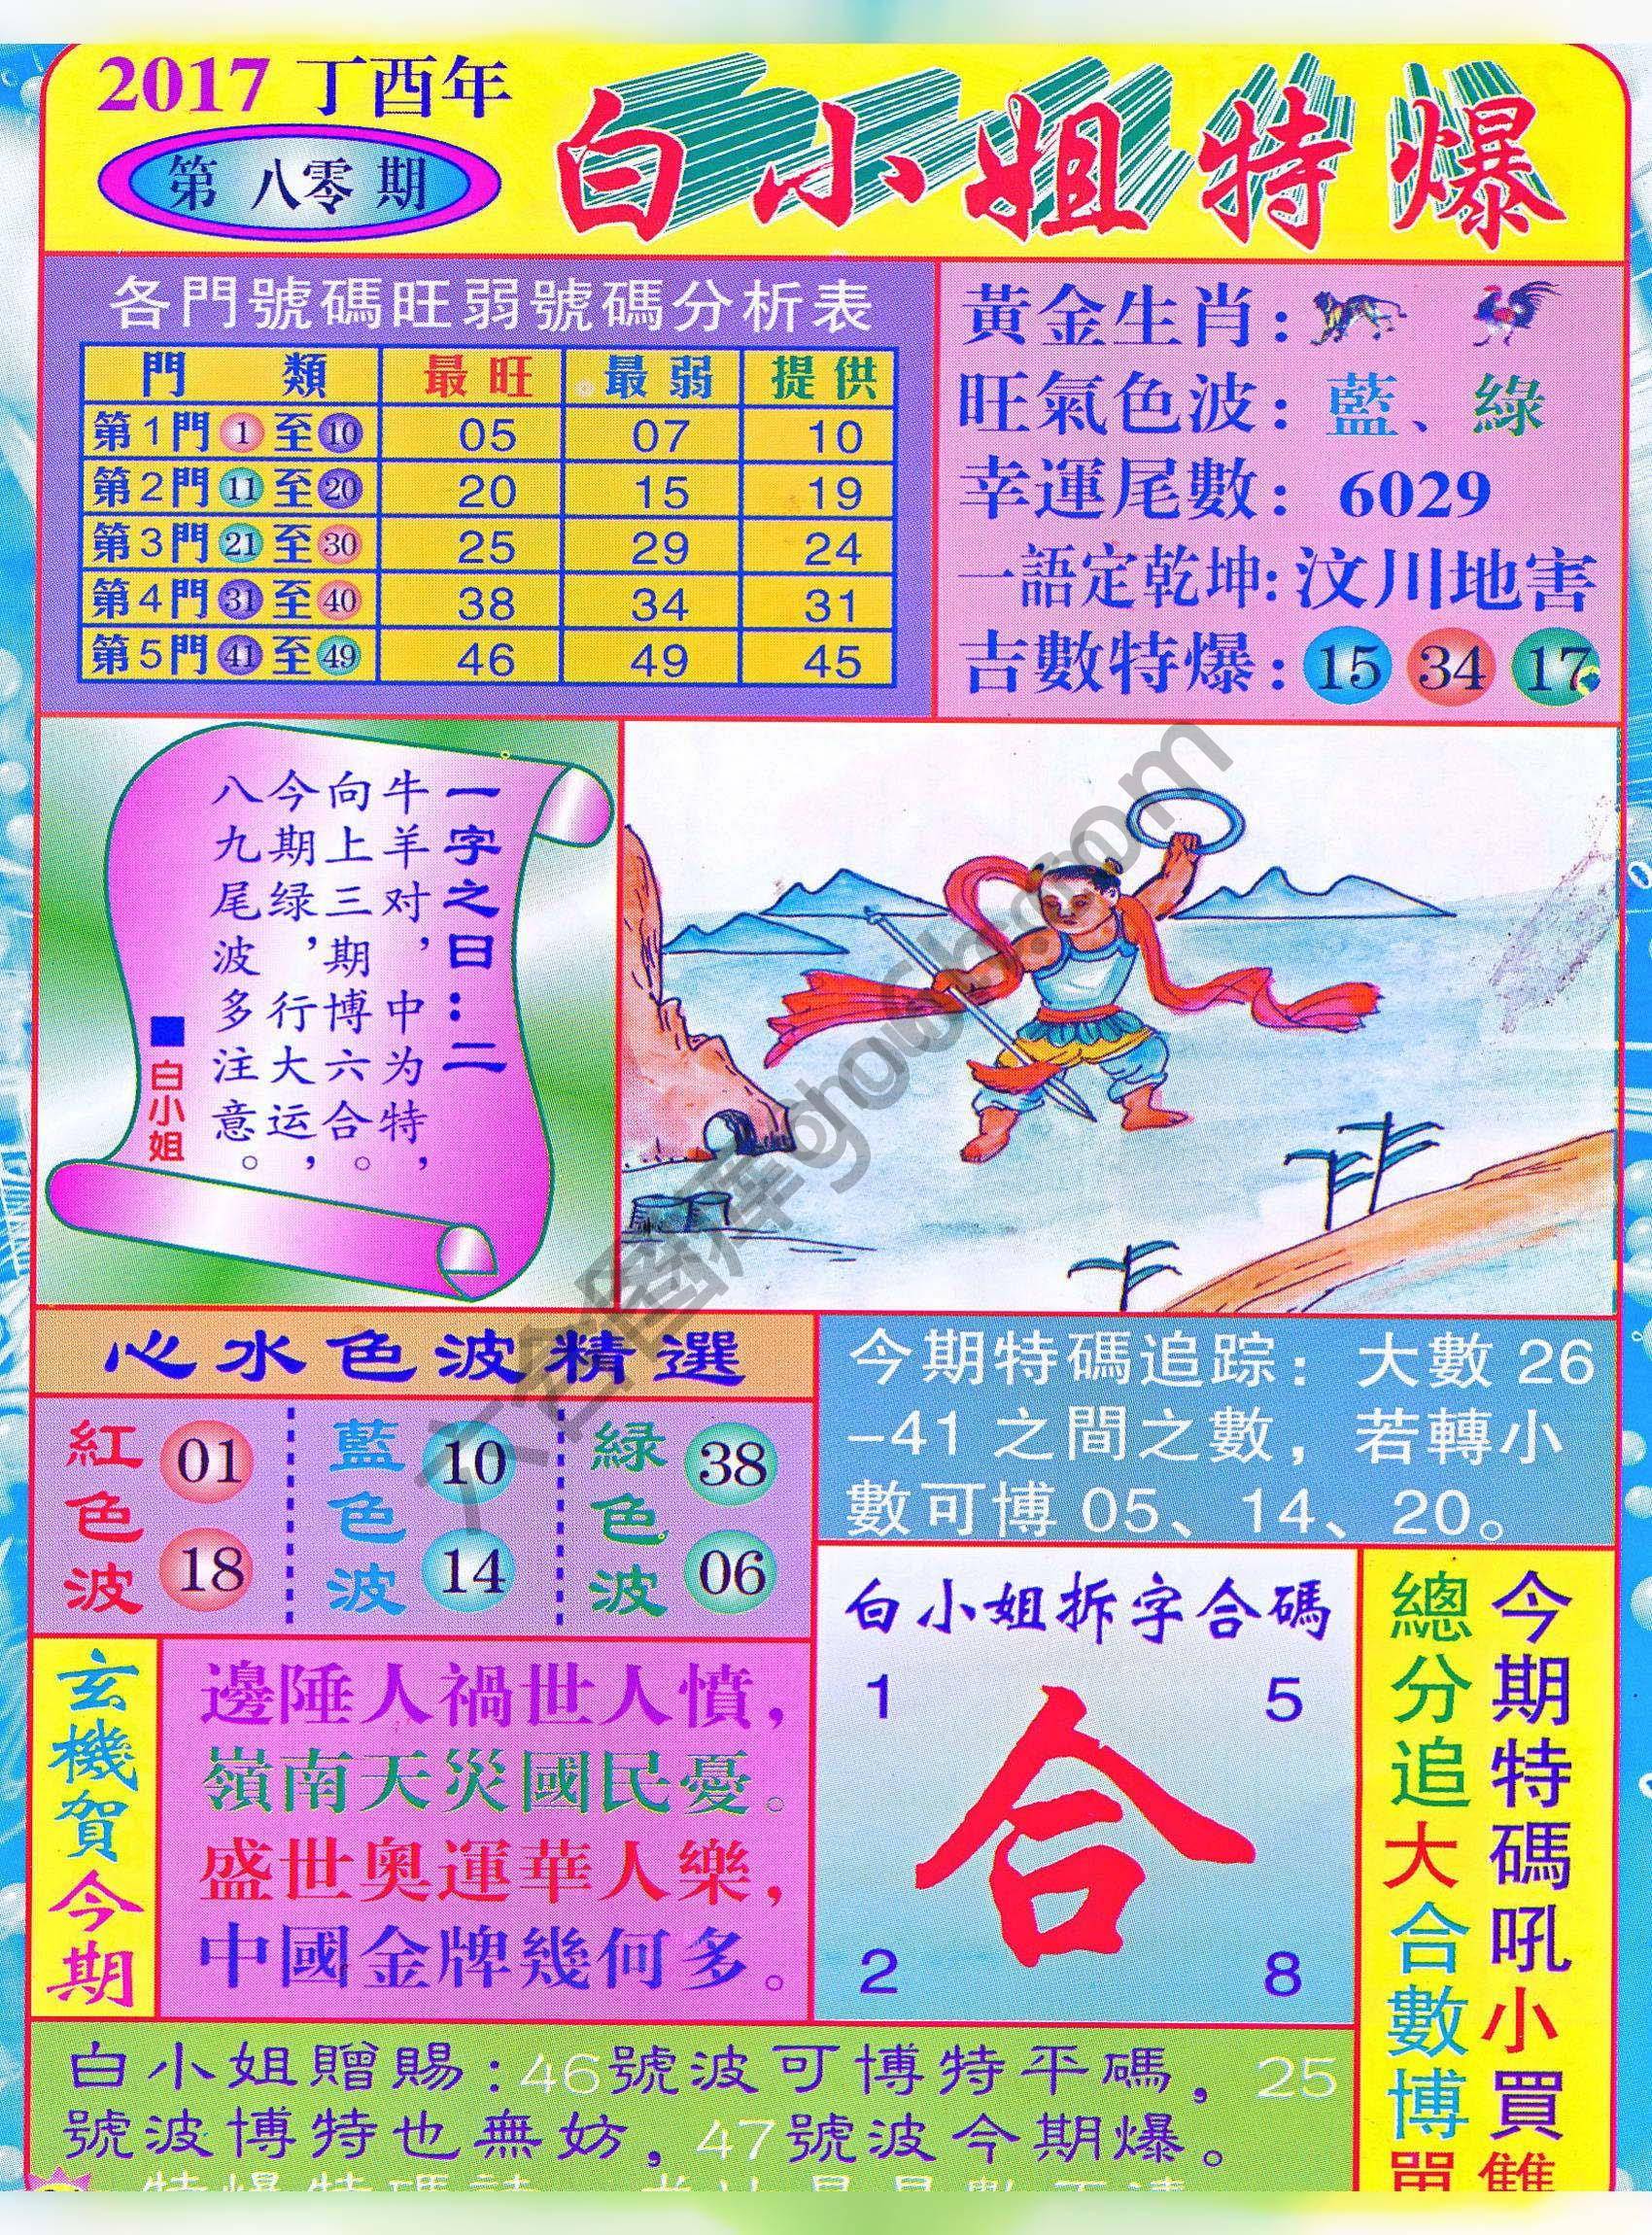 2017 丁酉年
第 八零 期
白小姐特爆
各門號碼旺弱號碼分析表
門 類 最旺 最弱 提供
第1門 1 至 10 05 07 10
第2門 11 至 20 20 15 19
第3門 21 至 30 25 29 24
第4門 31 至 40 38 34 31
第5門 41 至 49 46 49 45
黃金生肖:
旺氣色波: 藍、綠
幸運尾數: 6029
一語定乾坤: 汶川地害
吉數特爆: 15 34 17
一字之曰:二
牛羊对,中为特,
向上三期博六合。
今期绿,行大运,
八九尾波多注意。
■白小姐
心水色波精選
紅色波 01 18
藍色波 10 14
綠色波 38 06
今期特碼追踪: 大數 26
-41 之間之數, 若轉小
數可博 05、14、20。
玄機賀今期
邊陲人禍世人憤,
嶺南天災國民憂。
盛世奧運華人樂,
中國金牌幾何多。
白小姐拆字合碼
1 5
合
2 8
今期特碼吼小買雙
總分追大合數博單
白小姐贈賜:46號波可博特平碼, 25
號波博特也無妨, 47號波今期爆。
六合图库